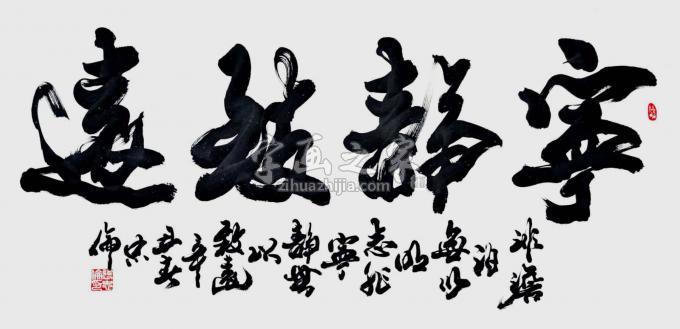 寧靜致遠
非澹
泊
無以
明
志非
寧
靜無
以
致遠
辛
丑春
忠
倫
字画之家
zihuazhijia.com